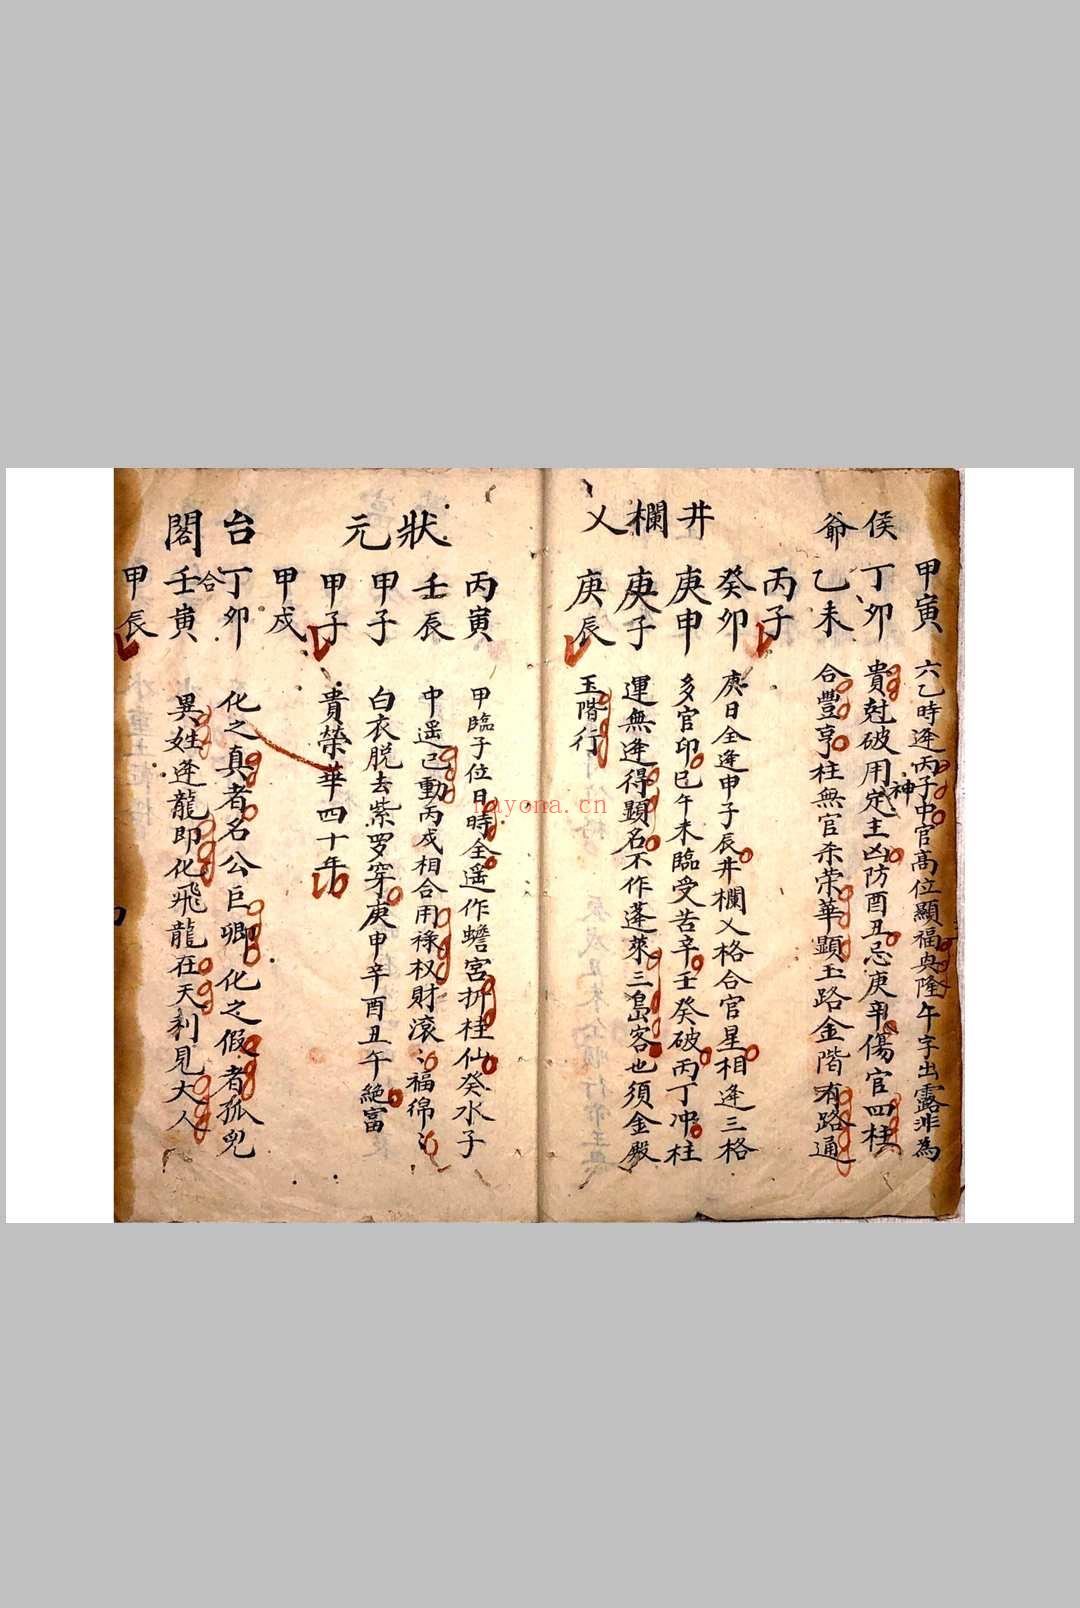 侯爺
甲寅 六乙時逢丙子中官高位顯福興隆午字出露非為
丁卯 貴尅破用神定主凶防酉丑忌庚辛傷官四柱
乙未 合豐亨柱無官杀荣華顯玉路金階有路通
丙子
井欄乂
癸卯 庚日全逢甲子辰井欄乂格合官星相逢三格
庚申 多官印巳午未臨受苦辛壬癸破丙丁冲柱
庚子 運無逢得顯名不作蓬萊三島客也須金殿
庚辰 玉階行
狀元
丙寅 甲臨子位日時全遥作蟾宮折桂仙癸水子
壬辰 中遥己動丙戍相合用祿权財滚〻福綿〻
甲子 白衣脱去紫罗穿庚申辛酉丑午絶富
甲子 貴榮華四十年
甲戍
台閣
丁卯 化之真者名公巨卿化之假者孤兒
合
壬寅 異姓逢龍即化飛龍在天利見大人
甲辰
nayona.cn